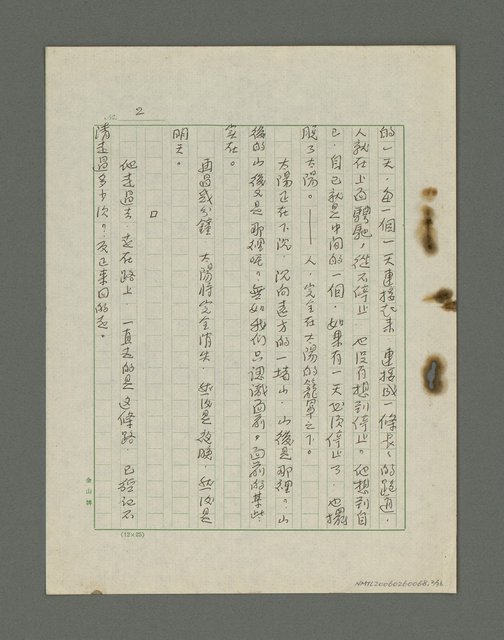 2
的一天，每一個一天連接起來 連接成一條長長的跑道，
人就在上面騁馳，從不停止 也沒有想到停止。他想到自
己，自己就是中間的一個 如果有一天必須停止了，也擺
脫了太陽。——人，完全在太陽的籠罩之下。
太陽正在下沉，沉向遠方的一堵山，山後是那裡？山
後的山後又是那裡呢？無如我們只認識面前，面前的某些
實在。
再過幾分鐘 太陽將完全消失，然後是夜晚，然後是
明天。
□
他走過去，走在路上，一直走的是這條路，已經記不
清走過多少次？反正來回的走。
金山牌
(12×25)
NMTL20060260068